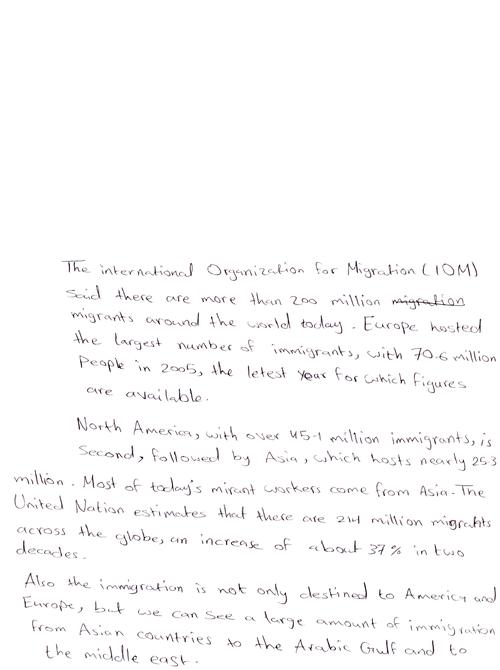 The international Organization for Migration (IOM)
said there are more than 200 million migration
migrants around the world today. Europe hosted
the largest number of immigrants, with 70.6 million
People in 2005, the letest year for which figures
are available.
North America, with over 45.1 million immigrants, is
Second, followed by Asia, which hosts nearly 25.3
million. Most of today's mirant workers come from Asia. The
United Nation estimates that there are 214 million migrants
across the globe, an increase of about 37% in two
decades.
Also the immigration is not only destined to America and
Europe, but we can see a large amount of immigration
from Asian countries to the Arabic Gulf and to
the middle east.